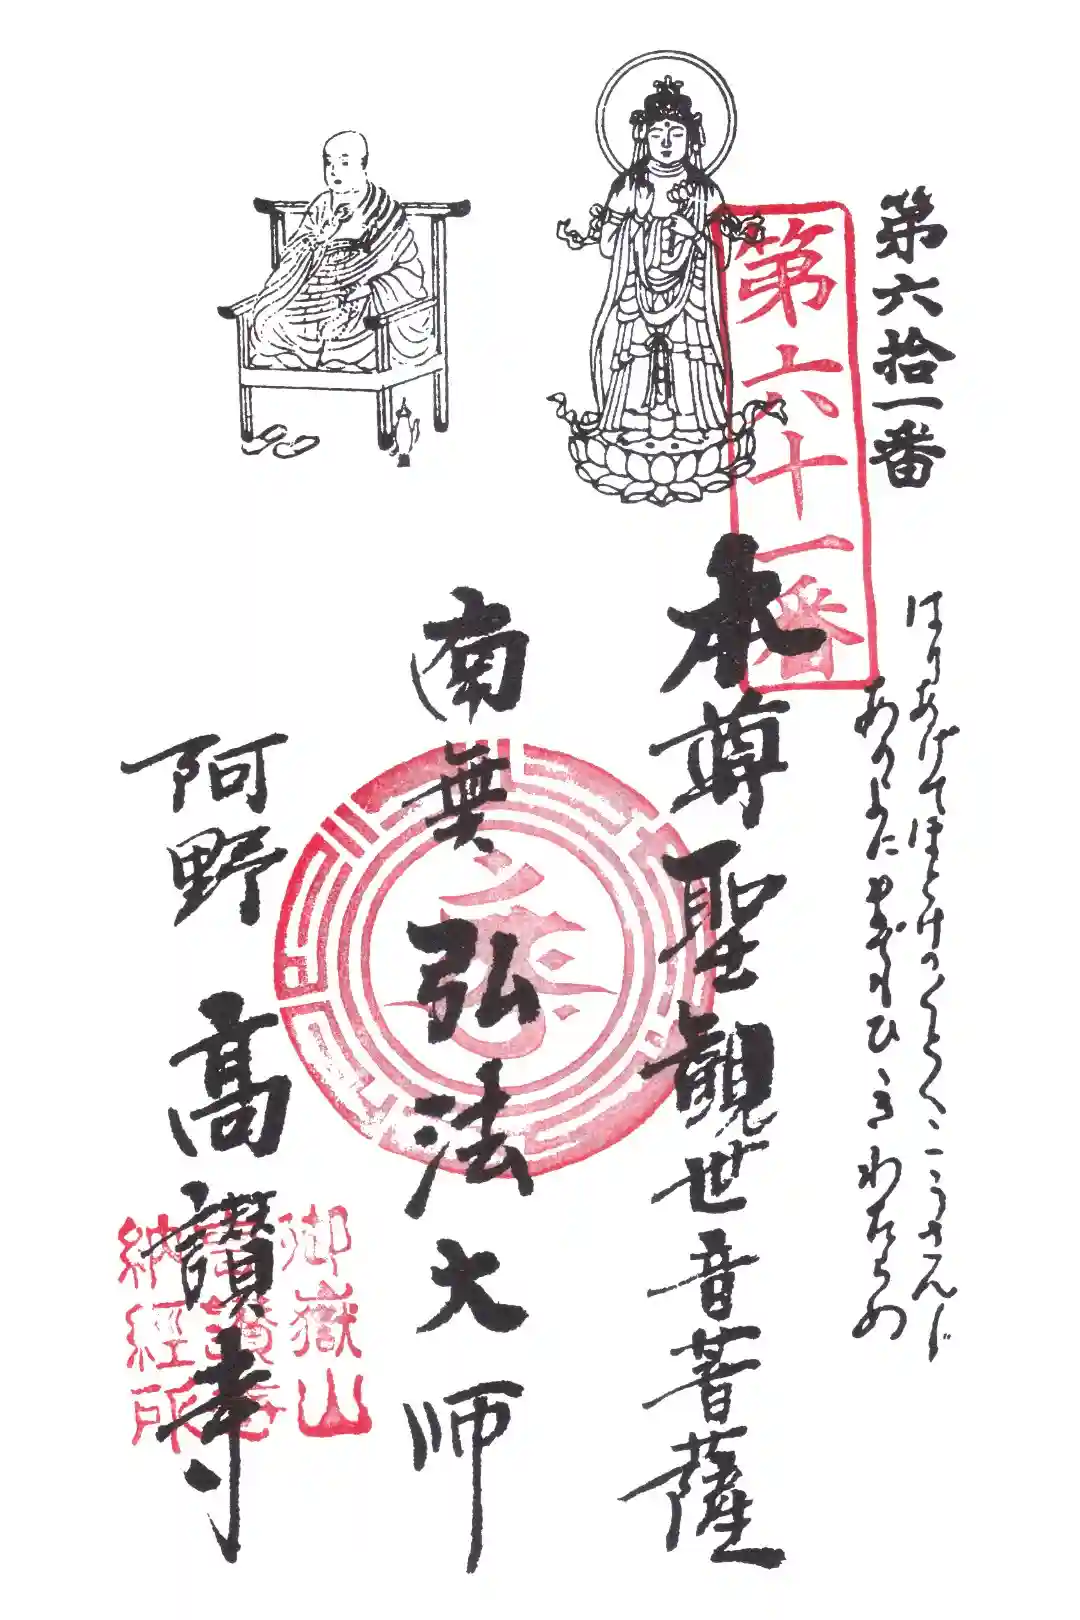 第六拾一番
はりあげてほとけのくどくこうさんじ
あのよにまでもひゞきわたらめ
第六十一番
本尊聖観世音菩薩
南無弘法大師
阿野 髙讃寺
御嶽山
高讃寺
納經所